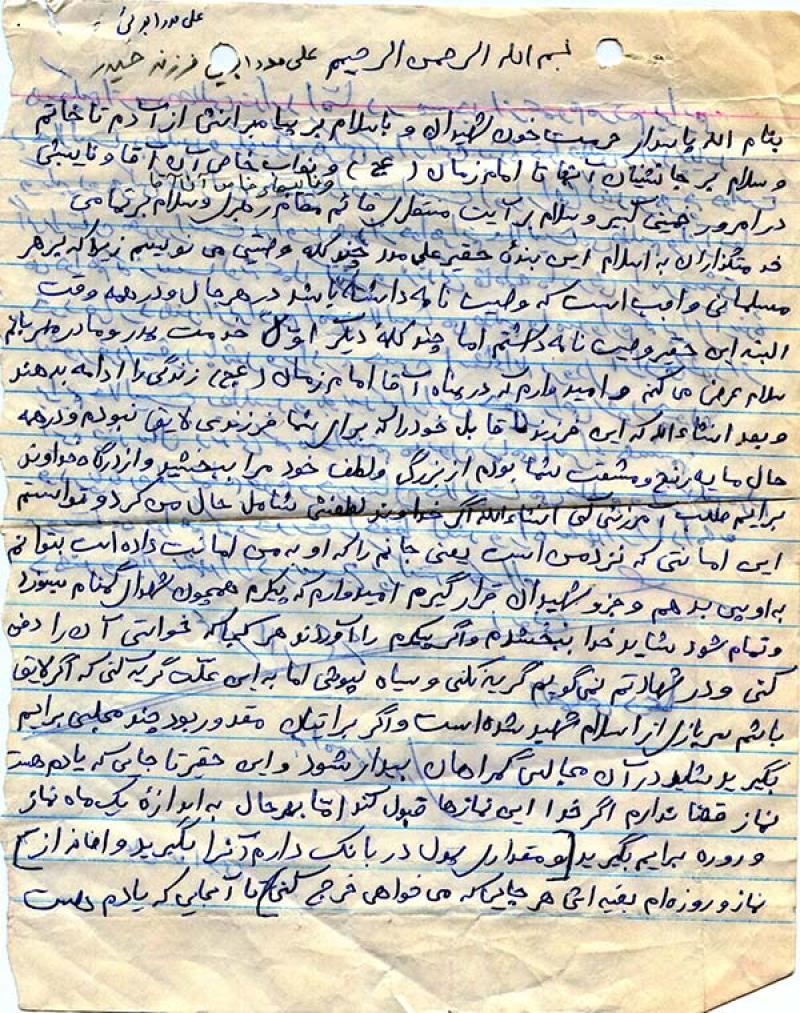 علی مدد ابوئی
بسم الله الرحمن الرحیم علی مدد فرزند حیدر
بنام الله پاسدار حرمت خون شهیدان و با سلام بر پیامبرانش از آدم تا خاتم
و سلام بر جانشینان آنها تا امام زمان (عج) و نواب خاص آن آقا و نایبش
و نایبهای خاص آن آقا
در امروز خمینی کبیر و سلام بر آیت منتظری قائم مقام رهبری و سلام بر تمامی
خدمتگذاران به اسلام این بنده حقیر علی مدد چند کله وصتی می نویسم زیرا که بر هر
مسلمانی واجب است که وصیت نامه داشته باشد در هر حال و در همه وقت
البته این حقیر وصیت نامه داشتم اما چند کلهٔ دیگر اول خدمت پدر و مادر مهربانم
سلام عرض می کنم و امیدوارم که در پناه آقا امام زمان (عج) زندگی را ادامه بدهند
و بعد انشاءالله که این فرزند نا قابل خود را که برای شما فرزندی لایق نبودم و در همه
حال مایه رنج و مشقت شما بودم از بزرگی و لطف خود مرا ببخشید و از درگاه خداوند
برایم طلب آمرزش کنی انشاءالله اگر خداوند لطفش شامل حال من کرد و خواستم
این امانتی که نزد من است یعنی جانم را که او به من امانت داده است بتوانم
به او پس بدهم و جزو شهیدان قرار گیرم امیدوارم که پیکرم همچون شهدای گمنام بسوزد
و تمام شود شاید خدا ببخشدم و اگر پیکرم را آوردند هر کجا که خواستی آن را دفن
کنی و در شهادتم نمی گویم گریه نکنی و سیاه نپوشی اما به این علت گریه کنی که اگر لایق
باشم سربازی از اسلام شهید شده است و اگر برایتان مقدور بود چند مجلسی برایم
بگیرید شاید در آن مجالس گمراهان بیدار شود و این حقیر تا جایی که یادم هست
نماز قضا ندارم اگر خدا این نمازها قبول کند اما بهر حال به اندازهٔ یک ماه نماز
و روزه برایم بگیرید [و مقداری پول در بانک دارم آنرا بگیرید و اضافه از]
نماز و روزه ام بقیه اش هر جایی که می خواهی خرج کنی تا آنجایی که یادم هست